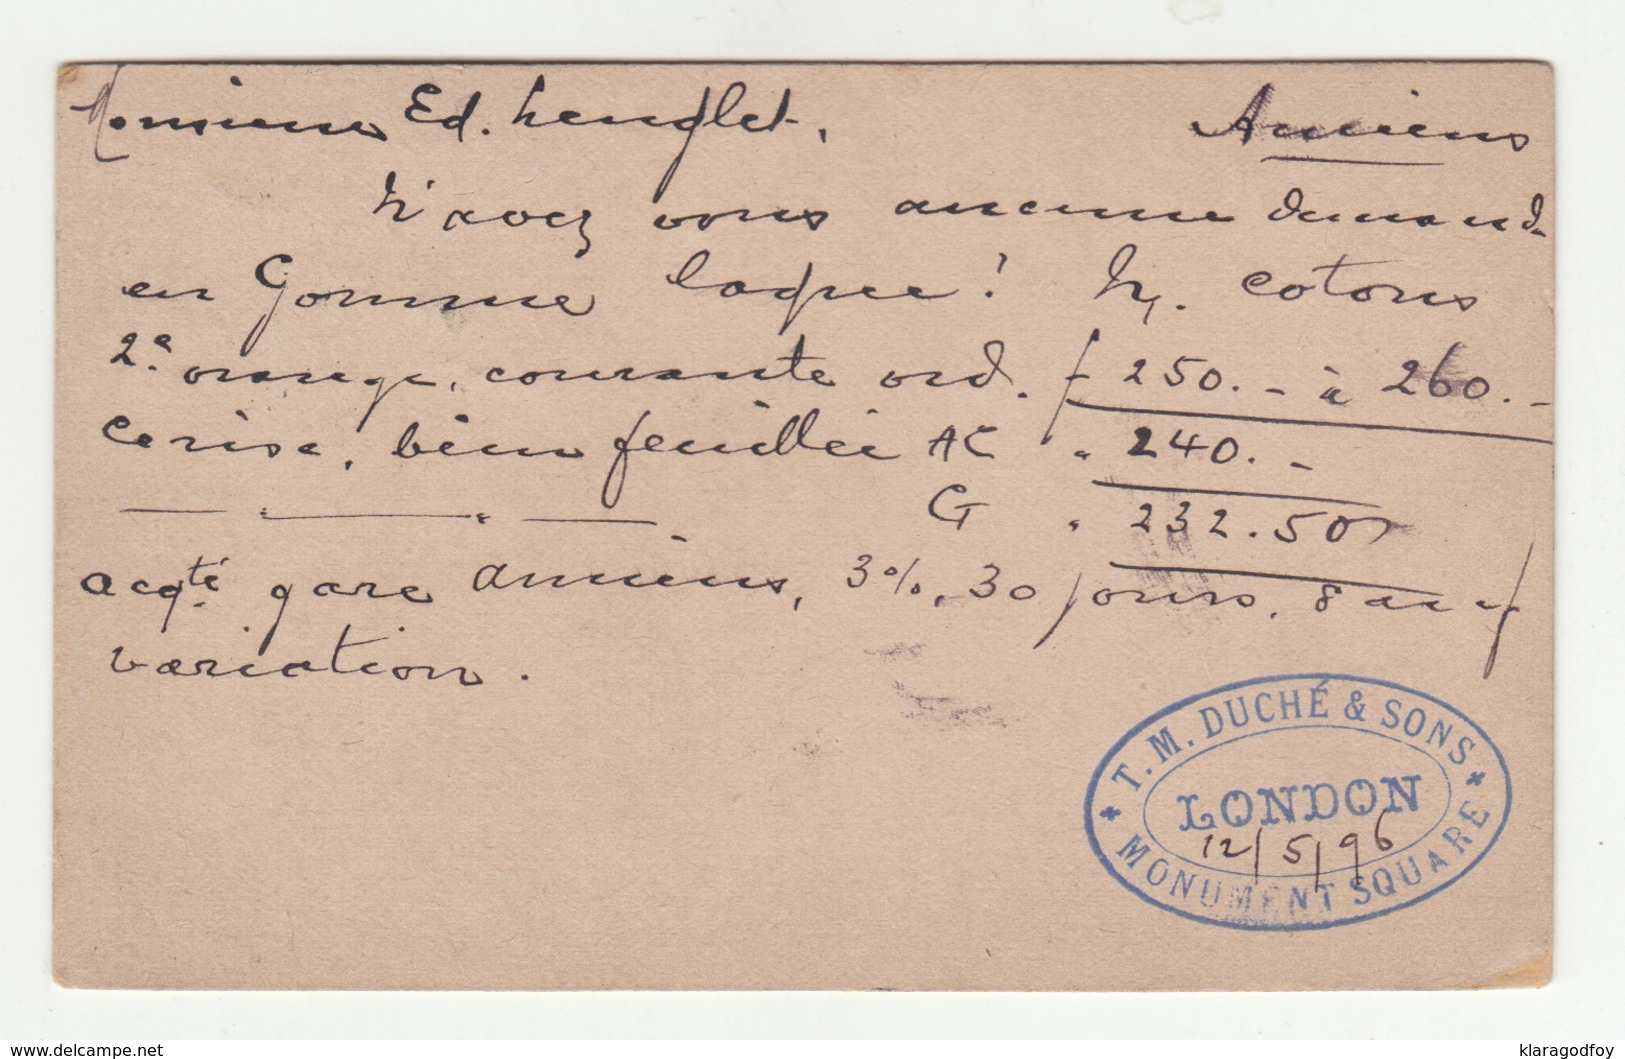 Monsieur Ed. Lenglet. Amiens
N'avez vous aucune demande
en Gomme laque! N/. cotons
2e orange, courante ord. f 250.- à 260.-
Cerise, bien feuillée AC " 240.-
— " — " — G " 232.50
acqté gare Amiens, 3%, 30 jours,
variation.
T. M. DUCHÉ & SONS
LONDON
12/5/96
MONUMENT SQUARE
www.delcampe.net
klaragodfoy